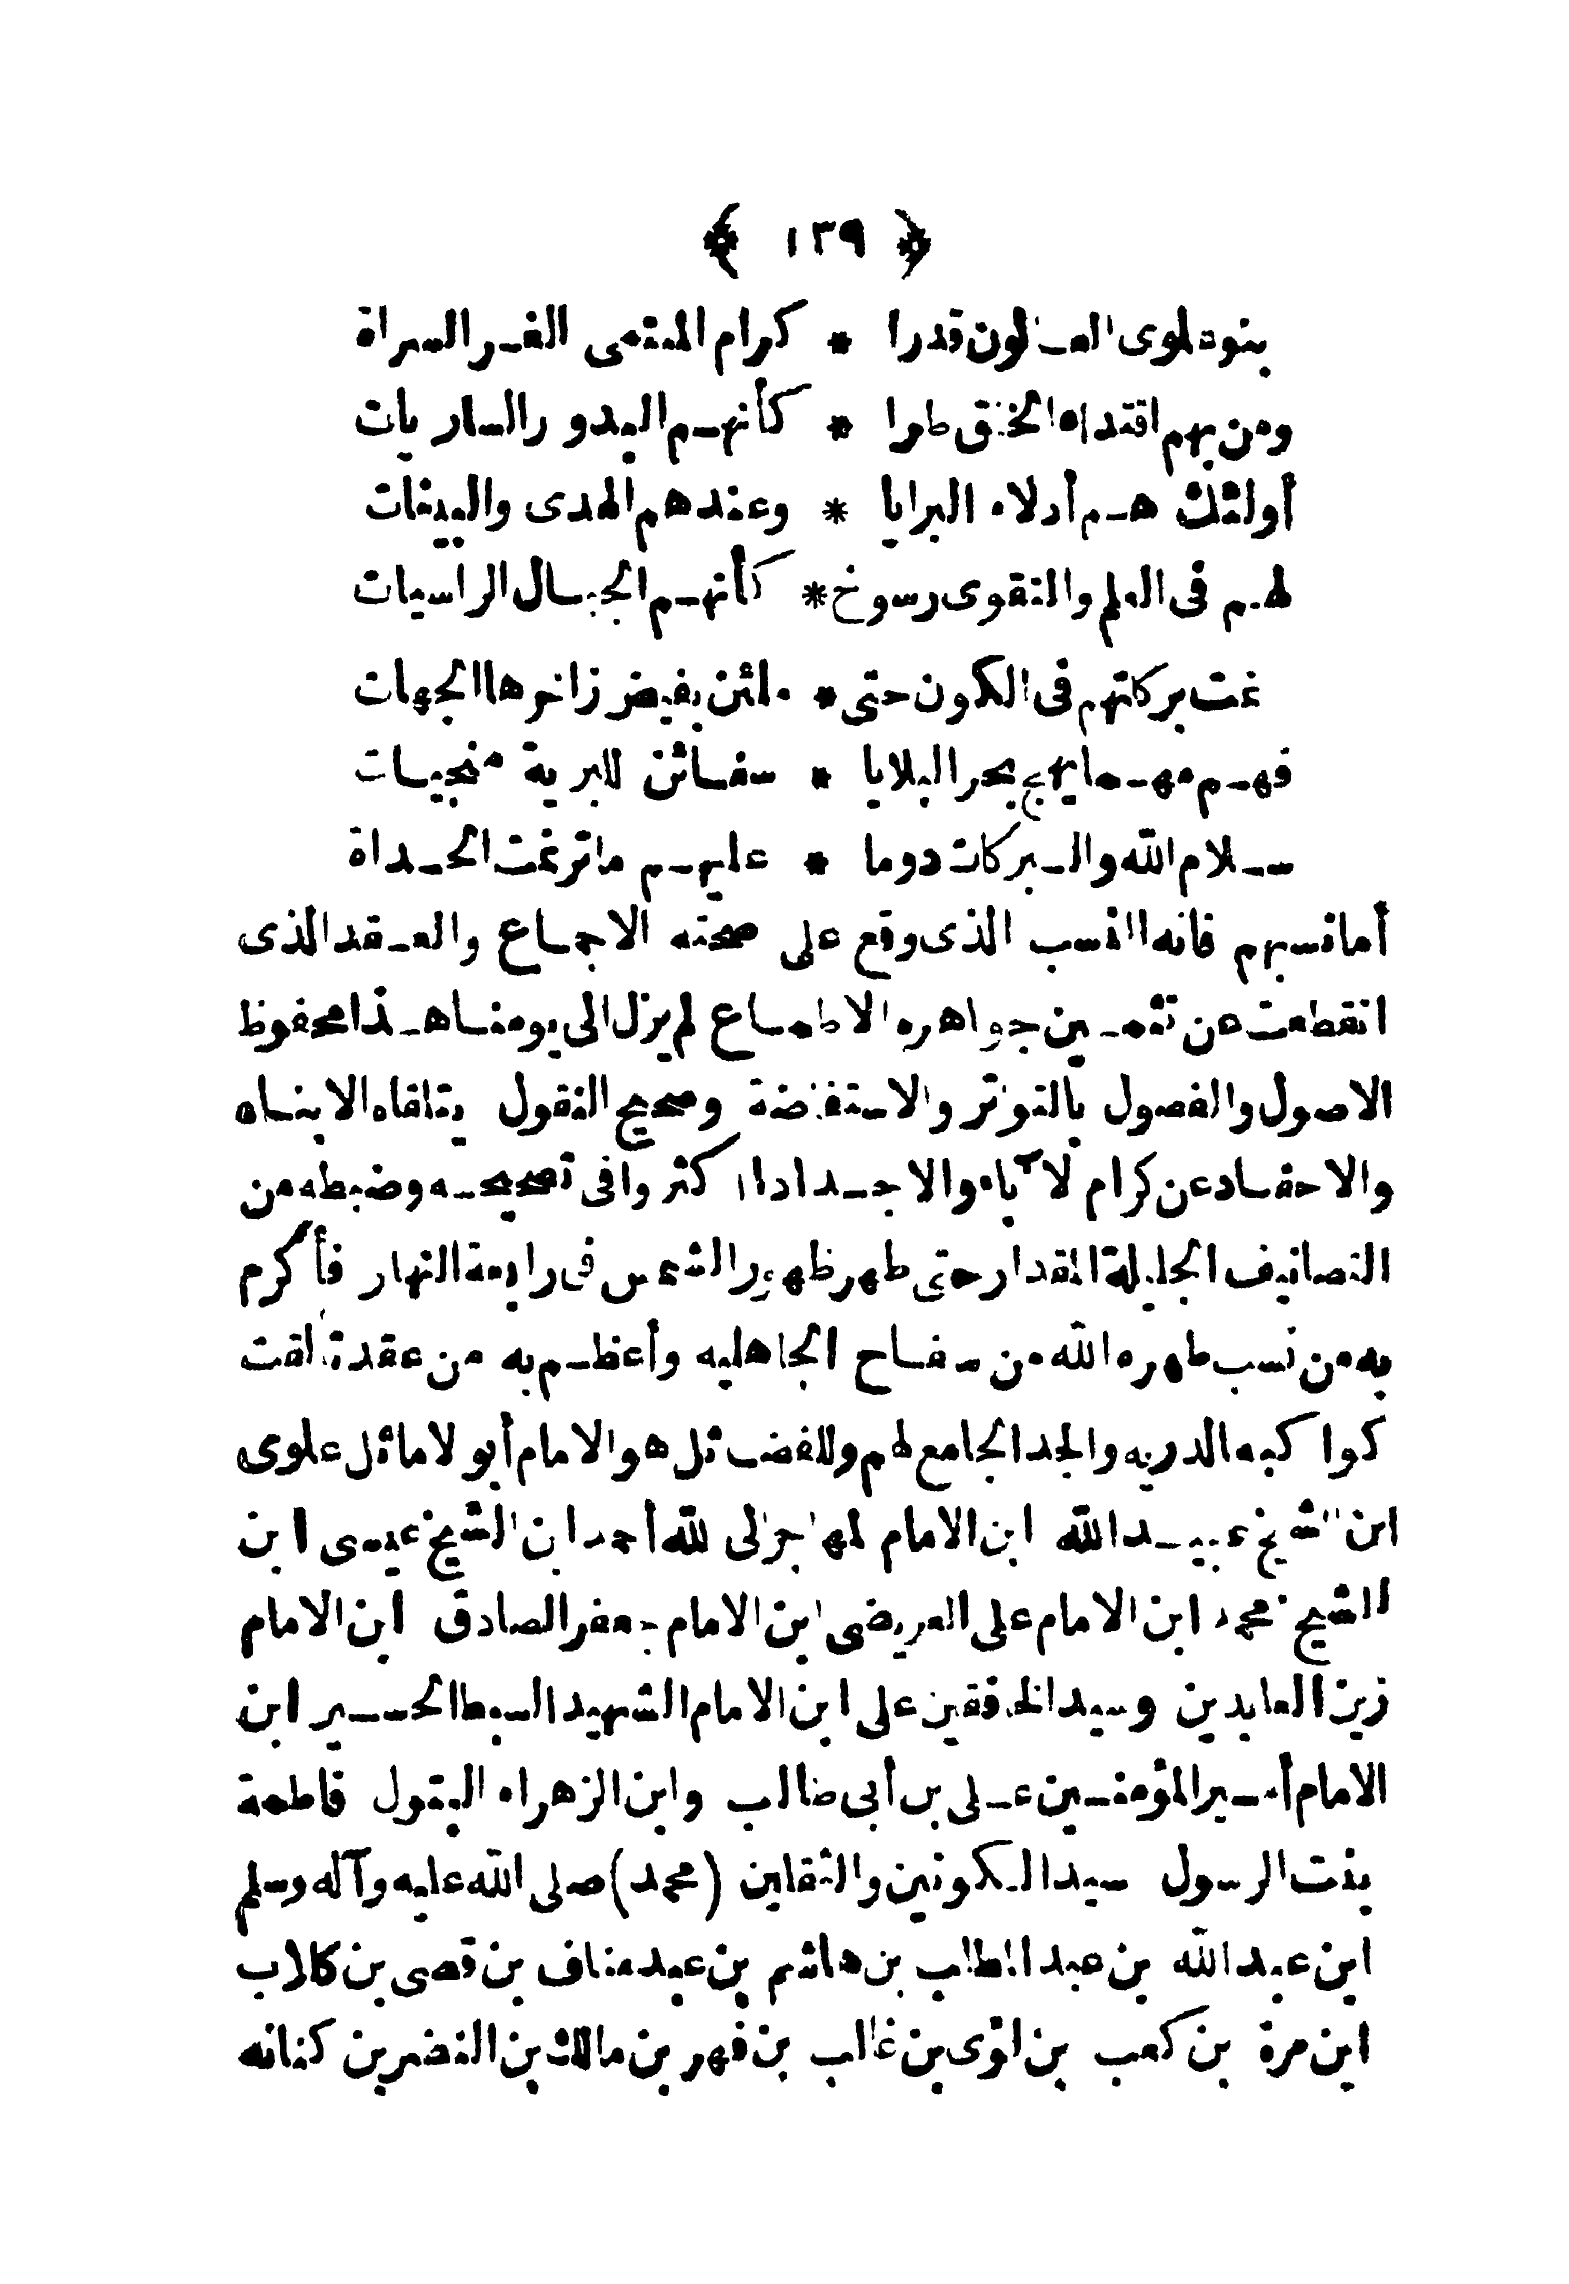 ﴿ ١٣٩ ﴾
بنو علوى العالون قدرا * كرام المنتمى الغر السراة
ومن بهم اقتداء الخلق طرا * كأنهم البدور الساريات
أولئك هم أدلاء البرايا * وعندهم الهدى والبينات
لهم فى العلم والتقوى رسوخ * كأنهم الجبال الراسيات
نمت بركاتهم فى الكون حتى * ملئن بفيض زاخرها الجهات
فهم مهما يهج بحر البلايا * سفائن للبرية منجيات
سلام الله والبركات دوما * عليهم ماترنمت الحداة
أمانسبهم فانه النسب الذى وقع على صحته الاجماع والعقد الذى
انقطعت عن تثمين جواهره الاطماع لم يزل الى يومنا هذا محفوظ
الاصول والفصول بالتواتر والاستفاضة وصحيح النقول يتلقاه الابناء
والاحفاد عن كرام الآباء والاجداد اكثروا فى تصحيحه وضبطه من
التصانيف الجليلة المقدار حتى ظهر ظهور الشمس فى رابعة النهار فأكرم
به من نسب طهره الله من سفاح الجاهليه وأعظم به من عقد تألقت
كواكبه الدريه والجد الجامع لهم وللفضائل هو الامام أبو الاماثل علوى
ابن الشيخ عبيد الله ابن الامام المهاجر الى الله أحمد ابن الشيخ عيسى ابن
الشيخ محمد ابن الامام على العريضى ابن الامام جعفر الصادق ابن الامام
زين العابدين وسيد الخافقين على ابن الامام الشهيد السبط الحسين ابن
الامام أمير المؤمنين على بن أبى طالب وابن الزهراء البتول فاطمة
بنت الرسول سيد الكونين والثقلين (محمد) صلى الله عليه وآله وسلم
ابن عبد الله بن عبد المطلب بن هاشم بن عبد مناف بن قصى بن كلاب
ابن مرة بن كعب بن لؤى بن غالب بن فهر بن مالك بن النضر بن كنانه